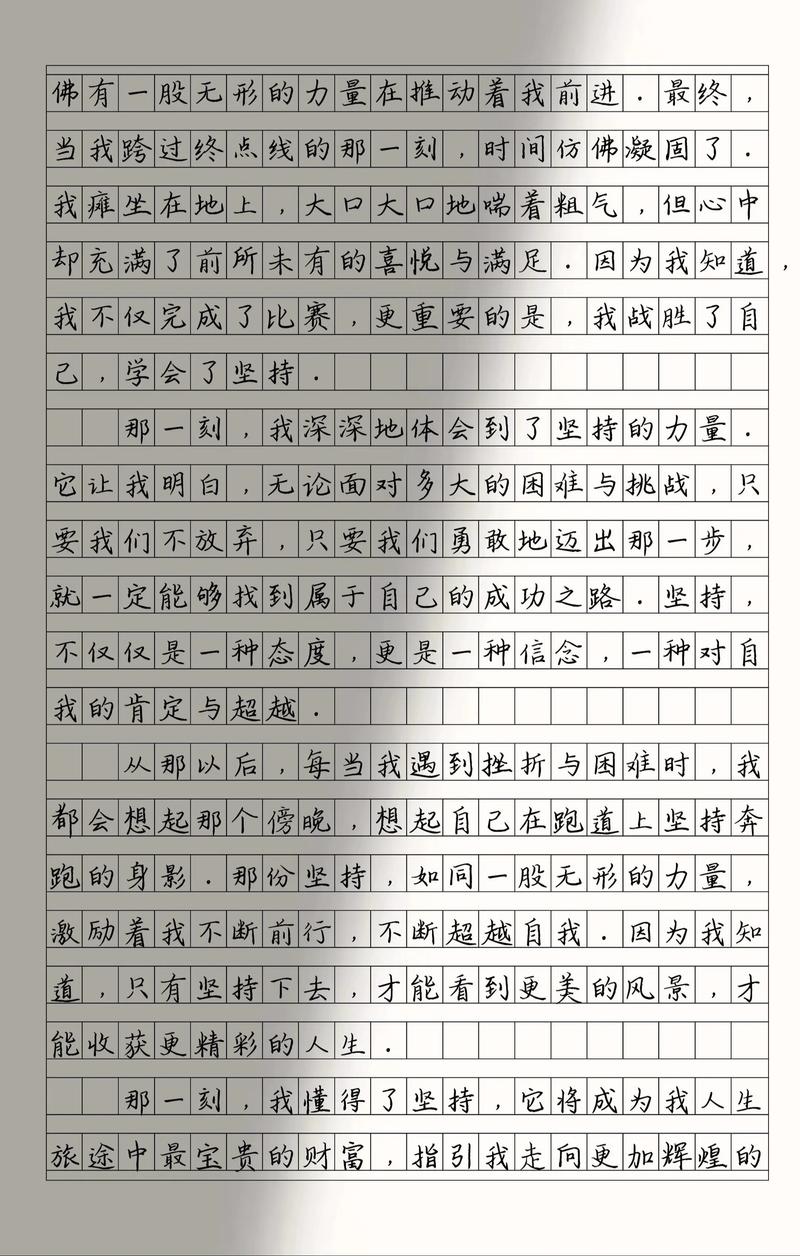 佛有一股无形的力量在推动着我前进．最终，
当我跨过终点线的那一刻，时间仿佛凝固了．
我瘫坐在地上，大口大口地喘着粗气，但心中
却充满了前所未有的喜悦与满足．因为我知道，
我不仅完成了比赛，更重要的是，我战胜了自
己，学会了坚持．
那一刻，我深深地体会到了坚持的力量．
它让我明白，无论面对多大的困难与挑战，只
要我们不放弃，只要我们勇敢地迈出那一步，
就一定能够找到属于自己的成功之路．坚持，
不仅仅是一种态度，更是一种信念，一种对自
我的肯定与超越．
从那以后，每当我遇到挫折与困难时，我
都会想起那个傍晚，想起自己在跑道上坚持奔
跑的身影．那份坚持，如同一股无形的力量，
激励着我不断前行，不断超越自我．因为我知
道，只有坚持下去，才能看到更美的风景，才
能收获更精彩的人生．
那一刻，我懂得了坚持，它将成为我人生
旅途中最宝贵的财富，指引我走向更加辉煌的